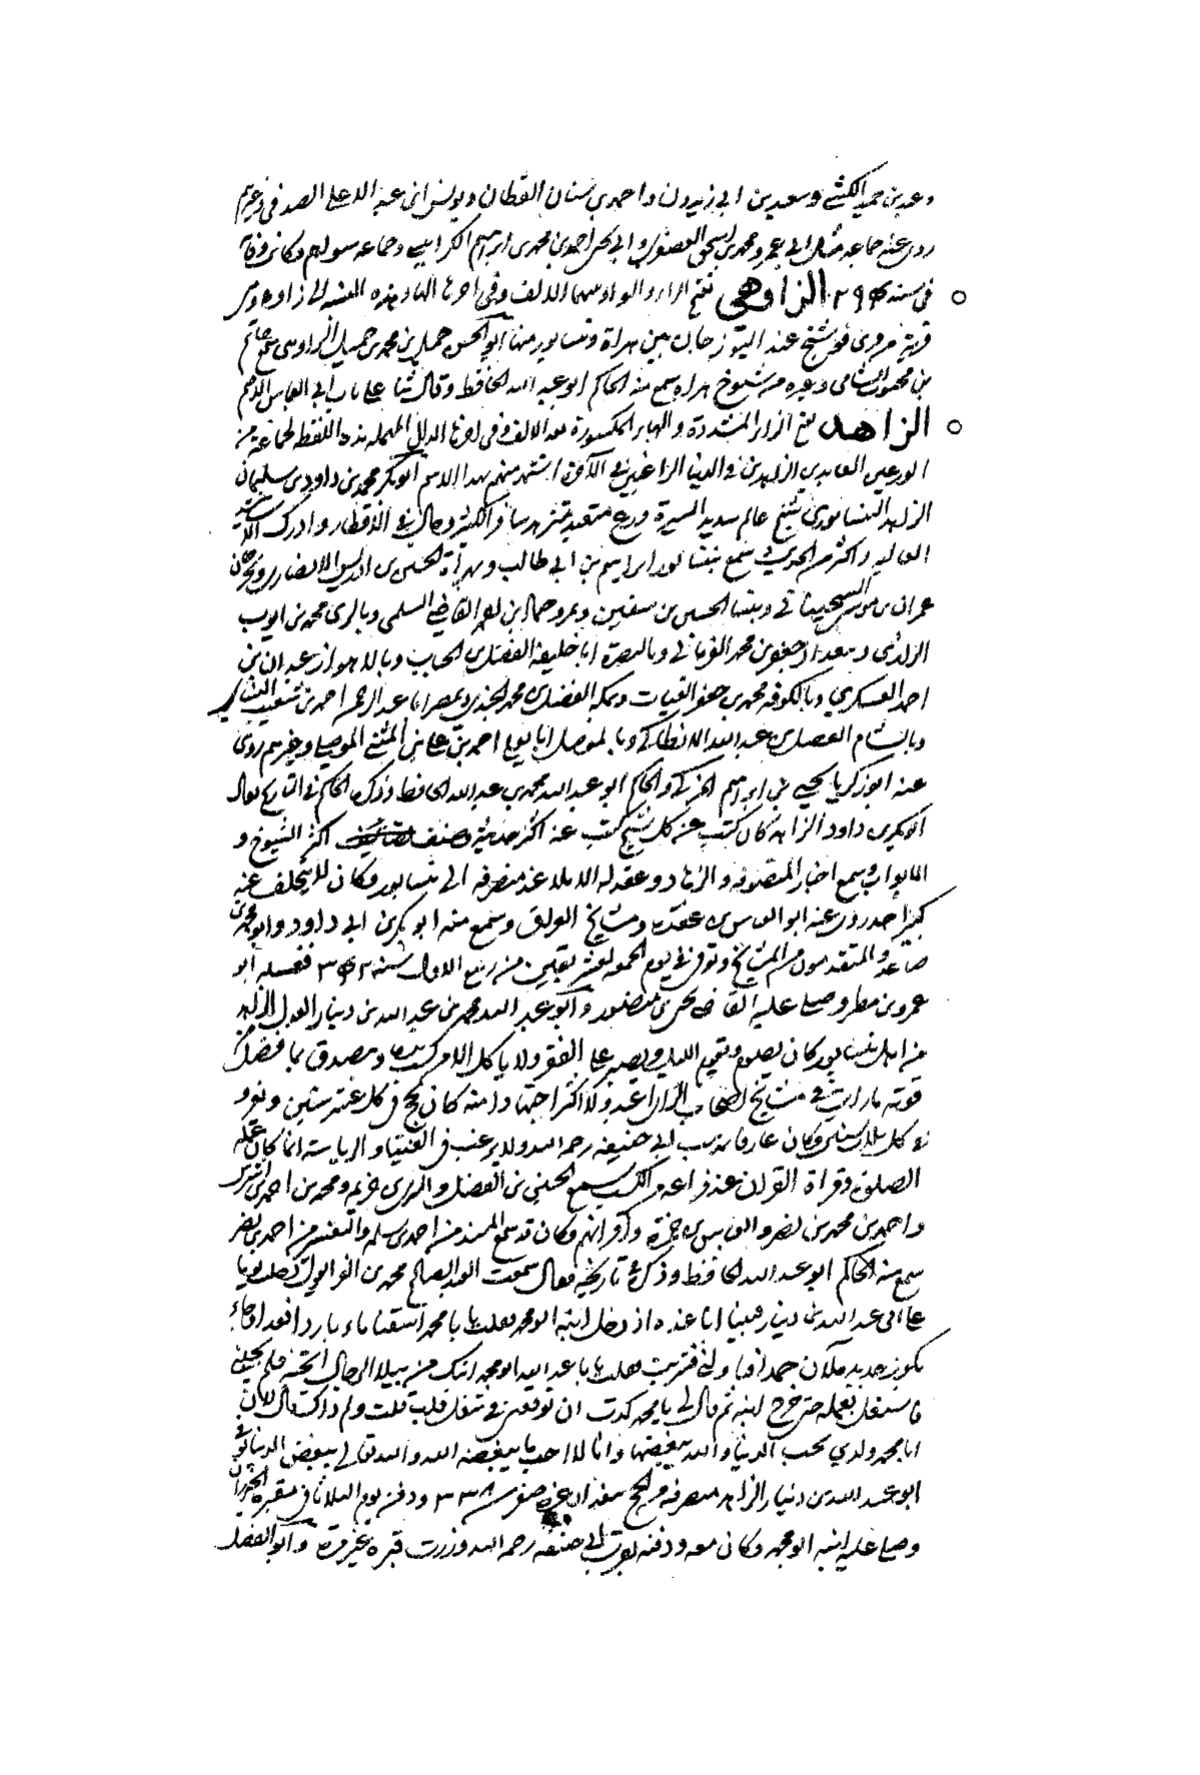 وعبد بن حميد الكشي وسعيد بن ابي زيدون واحمد بن سنان القطان ويونس ابن عبد الاعلى الصدفي وغيرهم
روى عنه جماعة مثل ابي عمرو محمد بن اسحق العصفري وابي بكر احمد بن محمد بن ابراهيم الكرابيسي وجماعة سواهم وكانت وفاته
في سنه الزاوهي بفتح الزاء والواو بينهما الالف وفي اخرها الهاء هذه النسبه الى زاوه وهي
قرية من قرى فوشنج عند البوزجان بين هراة ونيسابور منها ابو الحسن جميل بن محمد بن جميل الزاوهي سمع حاتم
بن محبوب الشامي وغيره من شيوخ هراه سمع منه الحاكم ابو عبد الله الحافظ وقال على باب ابي العباس الاصم
الزاهد بفتح الزاء المشددة والهاء المكسورة بعد الالف وفي اخرها الدال المهمله هذه اللفظه لجماعة من
الورعين العابدين الزاهدين في الدنيا الراغبين في الآخرة اشتهر منهم بهذا الاسم ابو بكر محمد بن داود بن سليمان
الزاهد النيسابوري شيخ عالم سديد السيرة ورع متعبد متزهد سافر الكثير وجال في الاقطار وادرك الاسانيد
العاليه واكثر من الحديث سمع بنيسابور ابراهيم بن ابي طالب وبهراة الحسين بن ادريس الانصاري وبجرجان
عمران بن موسى السختياني وبنسا الحسن بن سفين وبمرو حماد بن احمد القاضي السلمي وبالري محمد بن ايوب
الرازي وببغداد جعفر بن محمد الفريابي وبالبصرة ابا خليفة الفضل بن الحباب وبالاهواز عبدان بن
احمد العسكري وبالكوفه محمد بن جعفر القتات وبمكه المفضل بن محمد الجندي وبمصر ابا عبد الرحمن احمد بن شعيب النسائي
وبالشام الفضل بن عبد الله الانطاكي وبالموصل ابا يعلى احمد بن علي بن المثنى الموصلي وغيرهم روى
عنه ابو زكريا يحيى بن ابراهيم المزكي والحاكم ابو عبد الله محمد بن عبد الله الحافظ وذكره الحاكم في التاريخ فقال
ابو بكر بن داود الزاهد كان كتب عن كل شيخ كتب عنه اكثر حديثه وصنف اكثر الشيوخ و
الابواب وسمع اخبار المتصوفه والزهاد وعقد له الاملاء عند منصرفه الى نيسابور وكان لا يتخلف عنه
كبير احد روى عنه ابو العباس بن عقده ومشايخ العراق وسمع منه ابو بكر بن ابي داود وابو محمد بن
صاعد والمتقدمون من المشايخ وتوفي في يوم الجمعه لعشر بقين من ربيع الاول سنه فغسله ابو
عمرو بن مطر وصلى عليه القاضي يحيى بن منصور وابو عبد الله محمد بن عبد الله بن دينار العدل الزاهد
من اهل نيسابور كان يصوم ويقوم الليل ويصبر على الفقر ولا ياكل الا من كسب يده ويتصدق بما فضل من
قوته ما رايت في مشايخ اصحاب الراى اعبد ولا اكثر اجتهادا منه كان يحج في كل عشر سنين ويغزو
في كل ثلاث سنين وكان عارفا بمذهب ابي حنيفه رحمه الله ولا يرغب في الفتيا والرياسة انما كان عمله
الصلوة وقراة القران عند فراغه من الكسب سمع الحسين بن الفضل والسري بن خزيمه ومحمد بن احمد بن انس
واحمد بن محمد بن نصر والعباس بن حمزة واقرانهم وكان قد سمع المسند من احمد بن سلمه والتفسير من احمد بن نصر
سمع منه الحاكم ابو عبد الله الحافظ وذكره في تاريخه فقال سمعت العبد الصالح محمد بن الفراء يقول دخلت يوما
على ابي عبد الله بن دينار فبينا انا عنده اذ دخل ابنه ابو محمد فقلت يا با محمد اسقنا ماء باردا فعدا وجاء
بكوز جديد ملآن جمدا وماء ولى فشربت فقلت يا با عبد الله ابو محمد ابنك من بيلا الرجال الجنه فلم يجبني
فاشتغل بعمله حتى خرج ابنه ثم قال لي يا محمد كدت ان توقعني في شغل قلب قلت ولم ذاك قال لان
ابا محمد ولدي يحب الدنيا والله يبغضها وانا لا احب ما يبغضه الله والله تعالى يبغض الدنيا توفي
ابو عبد الله بن دينار الزاهد منصرفه من الحج ببغداد غرة صفر سنه ٣٣٨ ودفن يوم الثلاثا في مقبرة الخيزران
وصلى عليه ابنه ابو محمد وكان معه ودفنه بقرب ابي حنيفه رحمه الله وزرت قبره غير مرة وابو الفضل